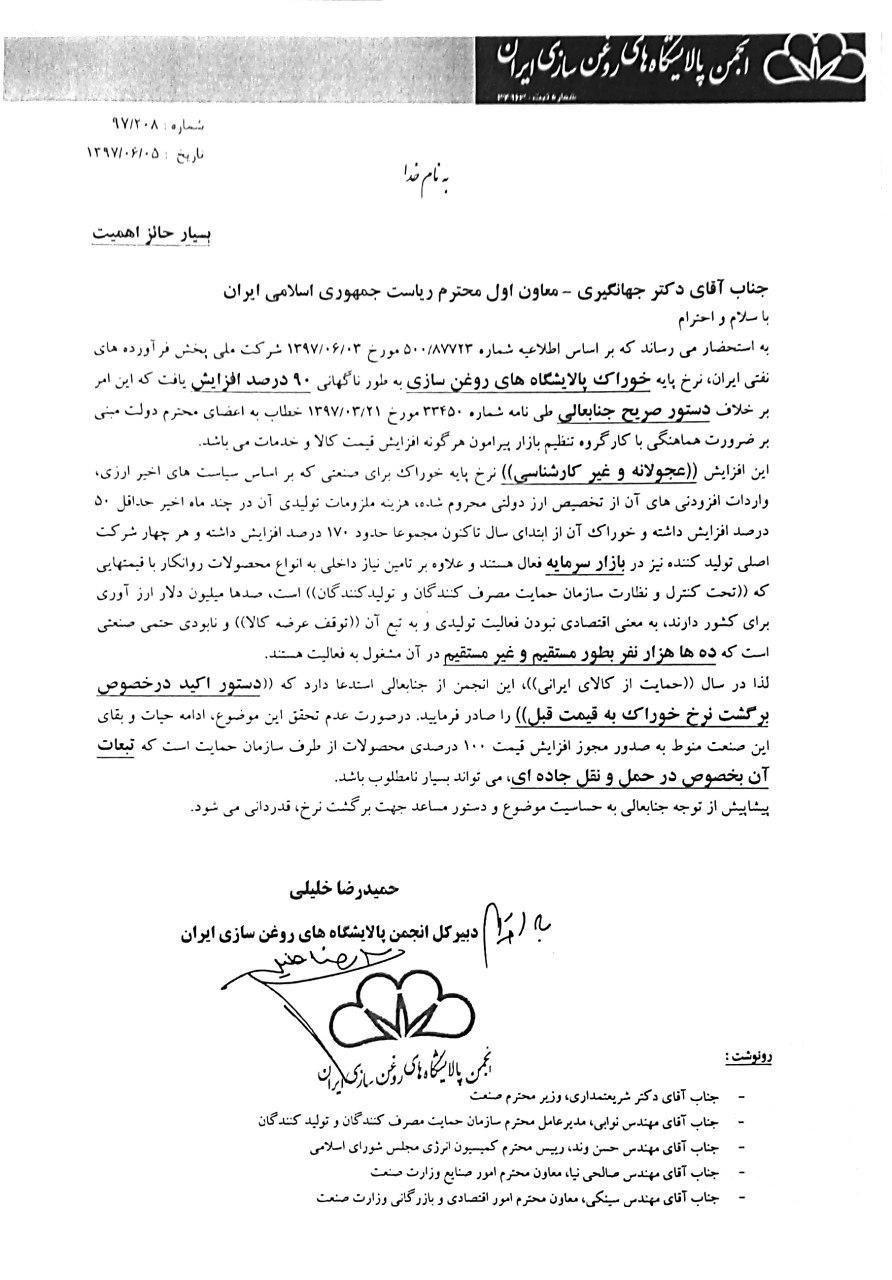 انجمن پالایشگاه های روغن سازی ایران
شماره ثبت: ۳۴۹۶۳
شماره : ۹۷/۲۰۸
تاریخ : ۱۳۹۷/۰۶/۰۵
به نام خدا
بسیار حائز اهمیت
جناب آقای دکتر جهانگیری – معاون اول محترم ریاست جمهوری اسلامی ایران
با سلام و احترام
به استحضار می رساند که بر اساس اطلاعیه شماره ۵۰۰/۸۷۷۲۳ مورخ ۱۳۹۷/۰۶/۰۳ شرکت ملی پخش فرآورده های
نفتی ایران، نرخ پایه خوراک پالایشگاه های روغن سازی به طور ناگهانی ۹۰ درصد افزایش یافت که این امر
بر خلاف دستور صریح جنابعالی طی نامه شماره ۳۳۴۵۰ مورخ ۱۳۹۷/۰۳/۲۱ خطاب به اعضای محترم دولت مبنی
بر ضرورت هماهنگی با کارگروه تنظیم بازار پیرامون هرگونه افزایش قیمت کالا و خدمات می باشد.
این افزایش ((عجولانه و غیر کارشناسی)) نرخ پایه خوراک برای صنعتی که بر اساس سیاست های اخیر ارزی،
واردات افزودنی های آن از تخصیص ارز دولتی محروم شده، هزینه ملزومات تولیدی آن در چند ماه اخیر حداقل ۵۰
درصد افزایش داشته و خوراک آن از ابتدای سال تاکنون مجموعا حدود ۱۷۰ درصد افزایش داشته و هر چهار شرکت
اصلی تولید کننده نیز در بازار سرمایه فعال هستند و علاوه بر تامین نیاز داخلی به انواع محصولات روانکار با قیمتهایی
که ((تحت کنترل و نظارت سازمان حمایت مصرف کنندگان و تولیدکنندگان)) است، صدها میلیون دلار ارز آوری
برای کشور دارند، به معنی اقتصادی نبودن فعالیت تولیدی و به تبع آن ((توقف عرضه کالا)) و نابودی حتمی صنعتی
است که ده ها هزار نفر بطور مستقیم و غیر مستقیم در آن مشغول به فعالیت هستند.
لذا در سال ((حمایت از کالای ایرانی))، این انجمن از جنابعالی استدعا دارد که ((دستور اکید درخصوص
برگشت نرخ خوراک به قیمت قبل)) را صادر فرمایید. درصورت عدم تحقق این موضوع، ادامه حیات و بقای
این صنعت منوط به صدور مجوز افزایش قیمت ۱۰۰ درصدی محصولات از طرف سازمان حمایت است که تبعات
آن بخصوص در حمل و نقل جاده ای، می تواند بسیار نامطلوب باشد.
پیشاپیش از توجه جنابعالی به حساسیت موضوع و دستور مساعد جهت برگشت نرخ، قدردانی می شود.
حمیدرضا خلیلی
با احترام
دبیرکل انجمن پالایشگاه های روغن سازی ایران
انجمن پالایشگاه های روغن سازی ایران
رونوشت :
- جناب آقای دکتر شریعتمداری، وزیر محترم صنعت
- جناب آقای مهندس نوابی، مدیرعامل محترم سازمان حمایت مصرف کنندگان و تولید کنندگان
- جناب آقای مهندس حسن وند، رییس محترم کمیسیون انرژی مجلس شورای اسلامی
- جناب آقای مهندس صالحی نیا، معاون محترم امور صنایع وزارت صنعت
- جناب آقای مهندس سینکی، معاون محترم امور اقتصادی و بازرگانی وزارت صنعت